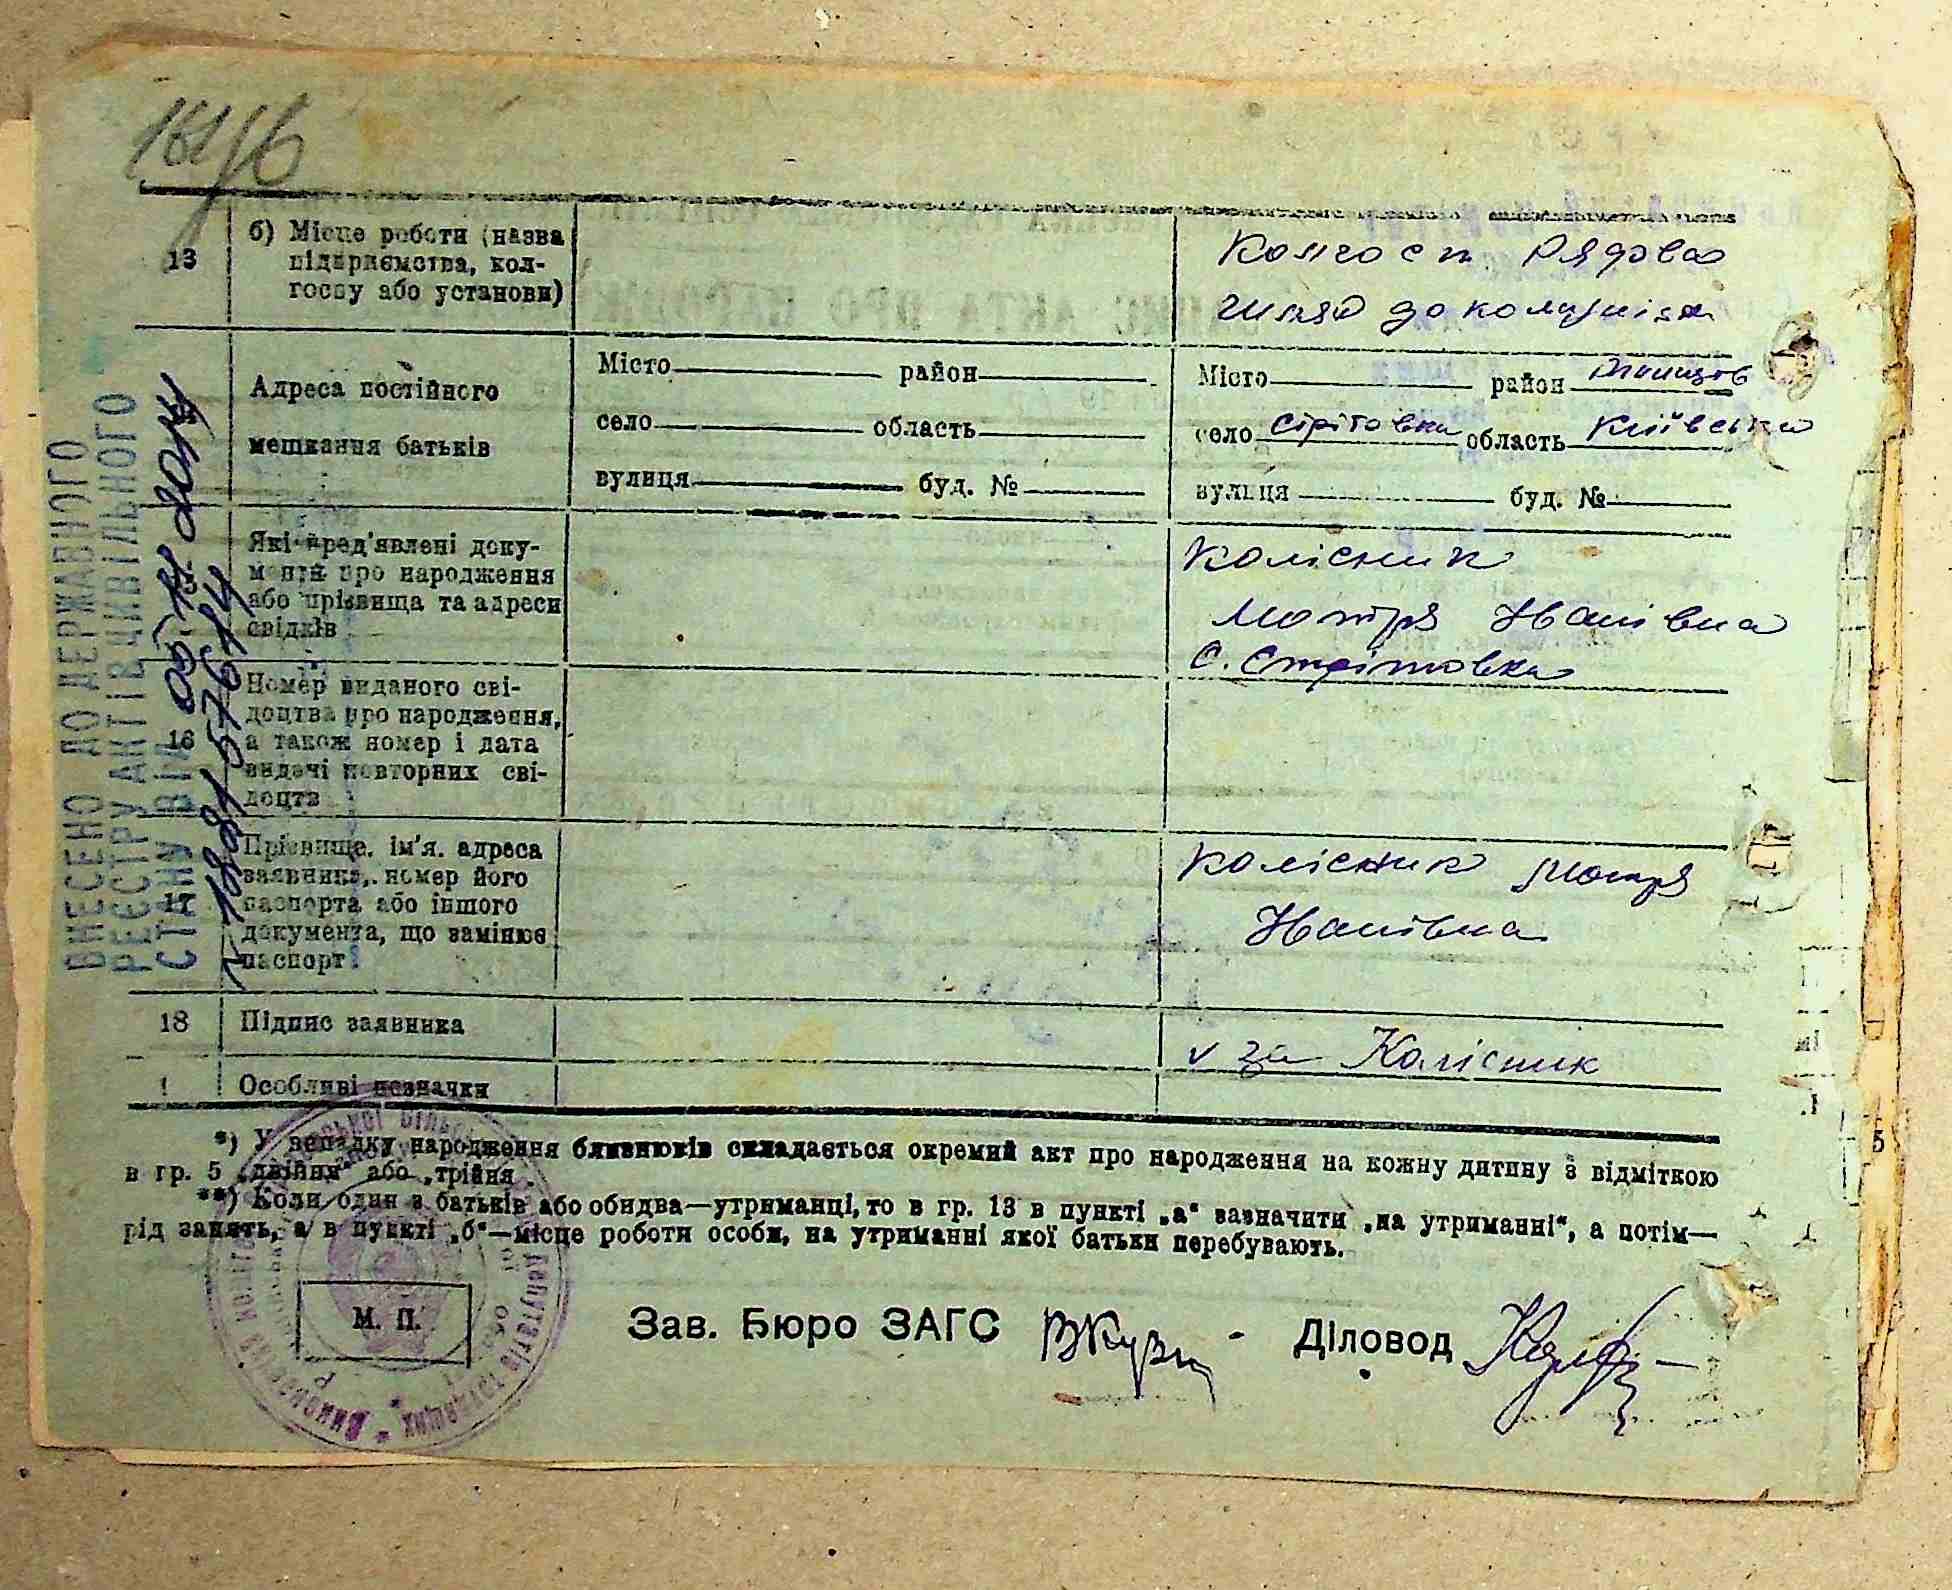 13
б) Місце роботи (назва
підприємства, кол-
госпу або установи)
Колгосп Рядова
шлях до комунізм
Адреса постійного
мешкання батьків
Місто район
село область
вулиця буд. №
Місто район
село Стрітовка область Київська
вулиця буд. №
Які пред'явлені доку-
менти про народження
або прізвища та адреси
свідків
Колісник
Мотря Іванівна
с. Стрітовка
16
Номер виданого сві-
доцтва про народження,
а також номер і дата
видачі повторних сві-
доцтв
17
Прізвище, ім'я, адреса
заявника, номер його
паспорта або іншого
документа, що замінює
паспорт
Колісник Мотря
Іванівна
18
Підпис заявника
за Колісник
Особливі позначки
*) У випадку народження близнюків складається окремий акт про народження на кожну дитину з відміткою
в гр. 5 „двійня" або „трійня".
**) Коли один з батьків або обидва—утриманці, то в гр. 13 в пункті „а" зазначити „на утриманні", а потім—
рід занять, а в пункті „б"—місце роботи особи, на утриманні якої батьки перебувають.
М. П.
Зав. Бюро ЗАГС
Діловод
ВНЕСЕНО ДО ДЕРЖАВНОГО
РЕЄСТРУ АКТІВ ЦИВІЛЬНОГО
СТАНУ ВІД